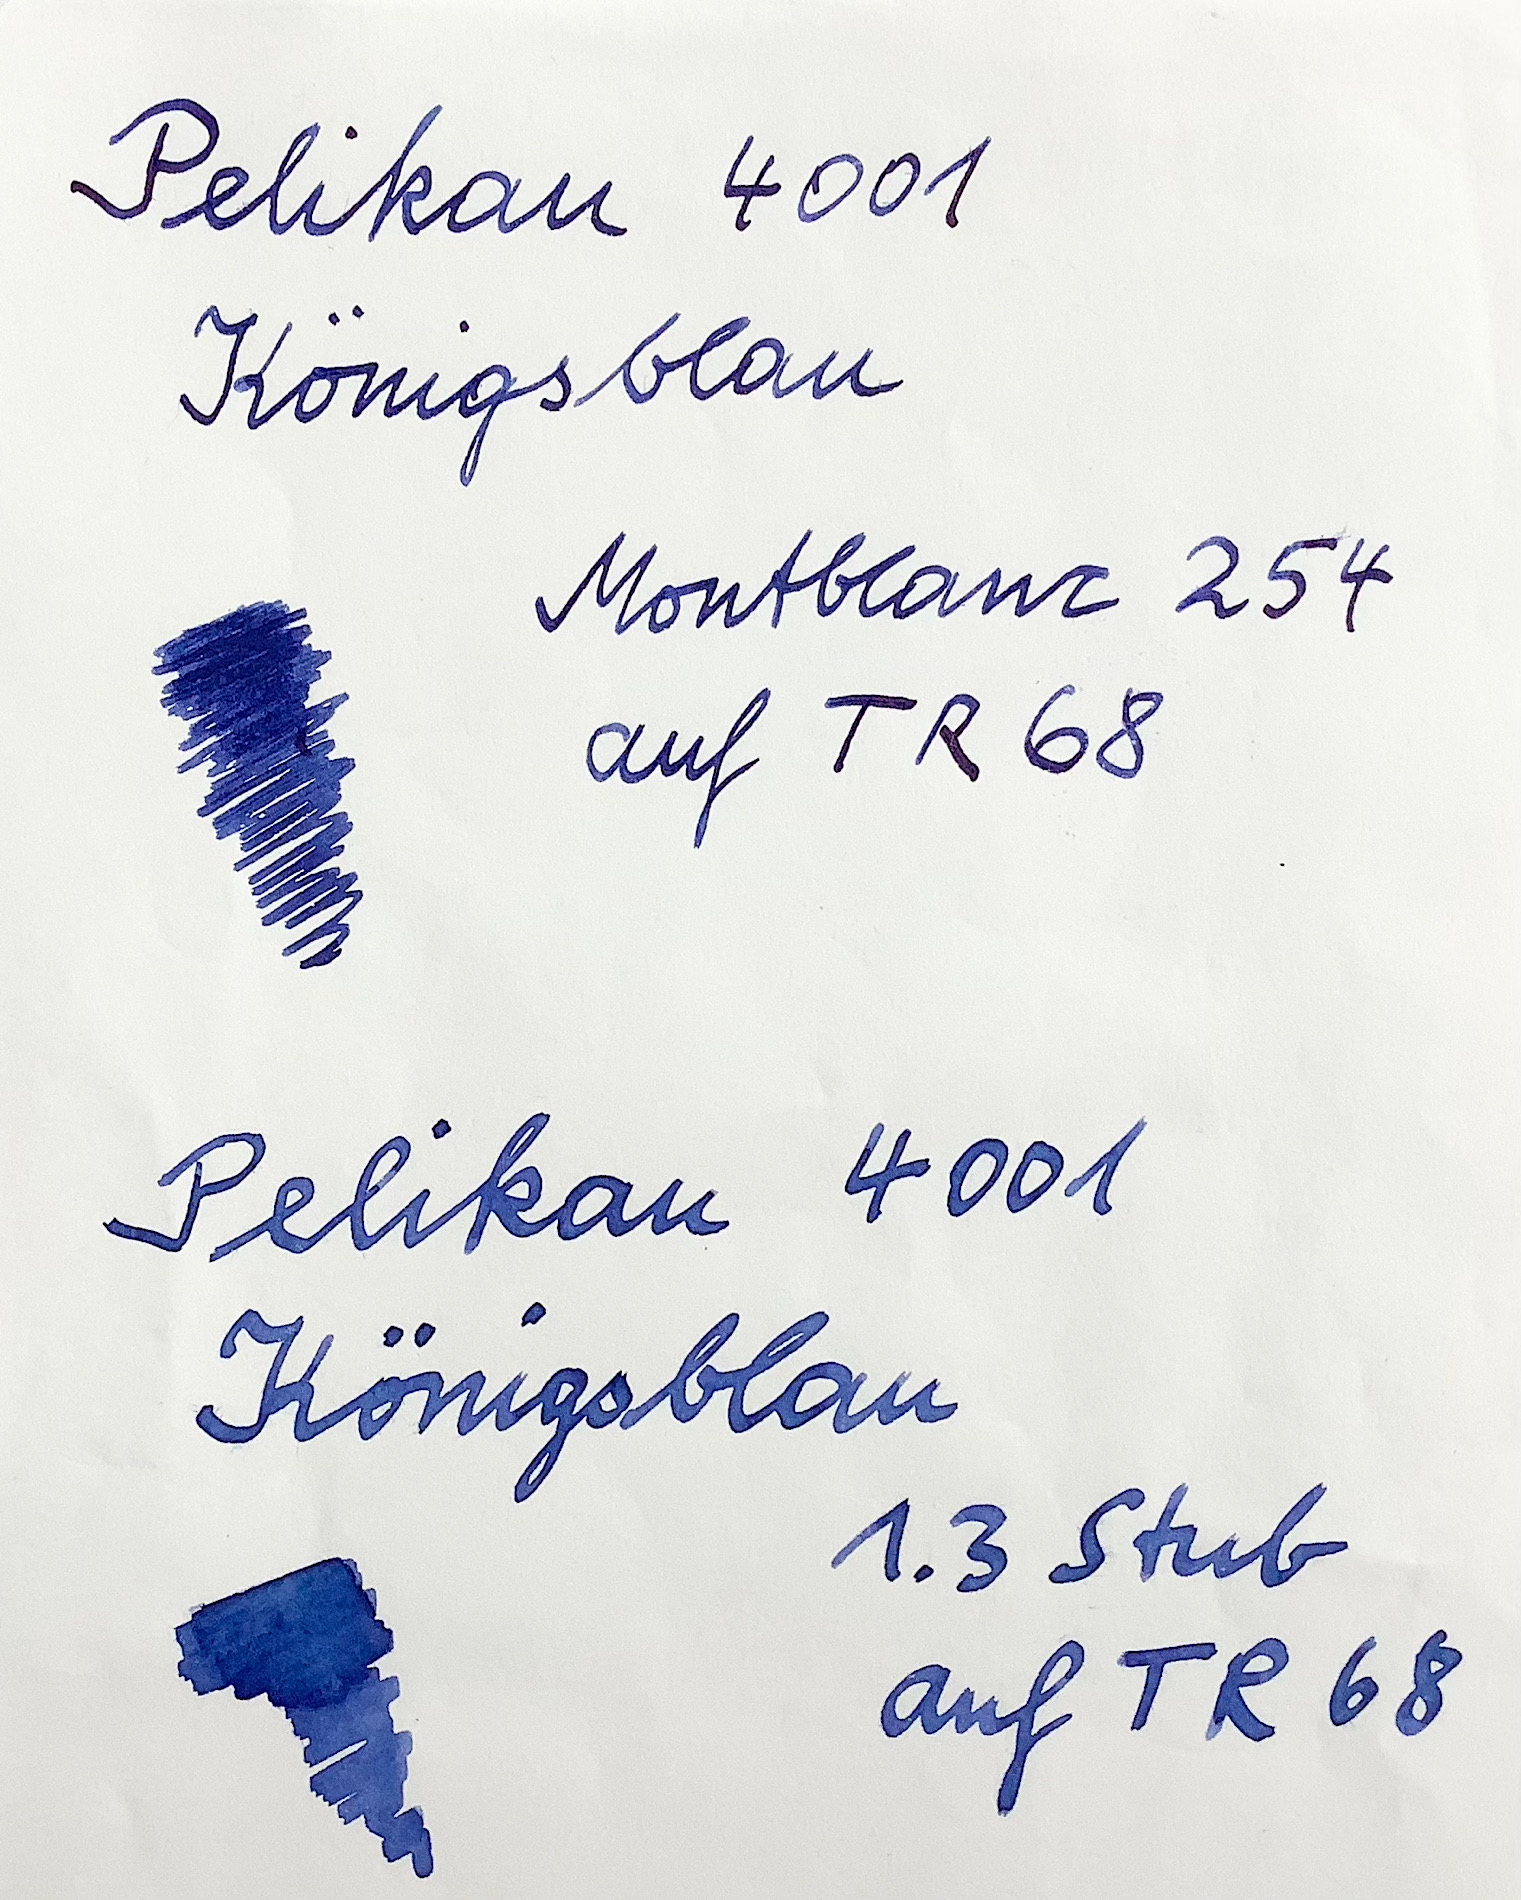 Pelikan 4001
Königsblau
Montblanc 254
auf TR 68
Pelikan 4001
Königsblau
1.3 Stub
auf TR 68